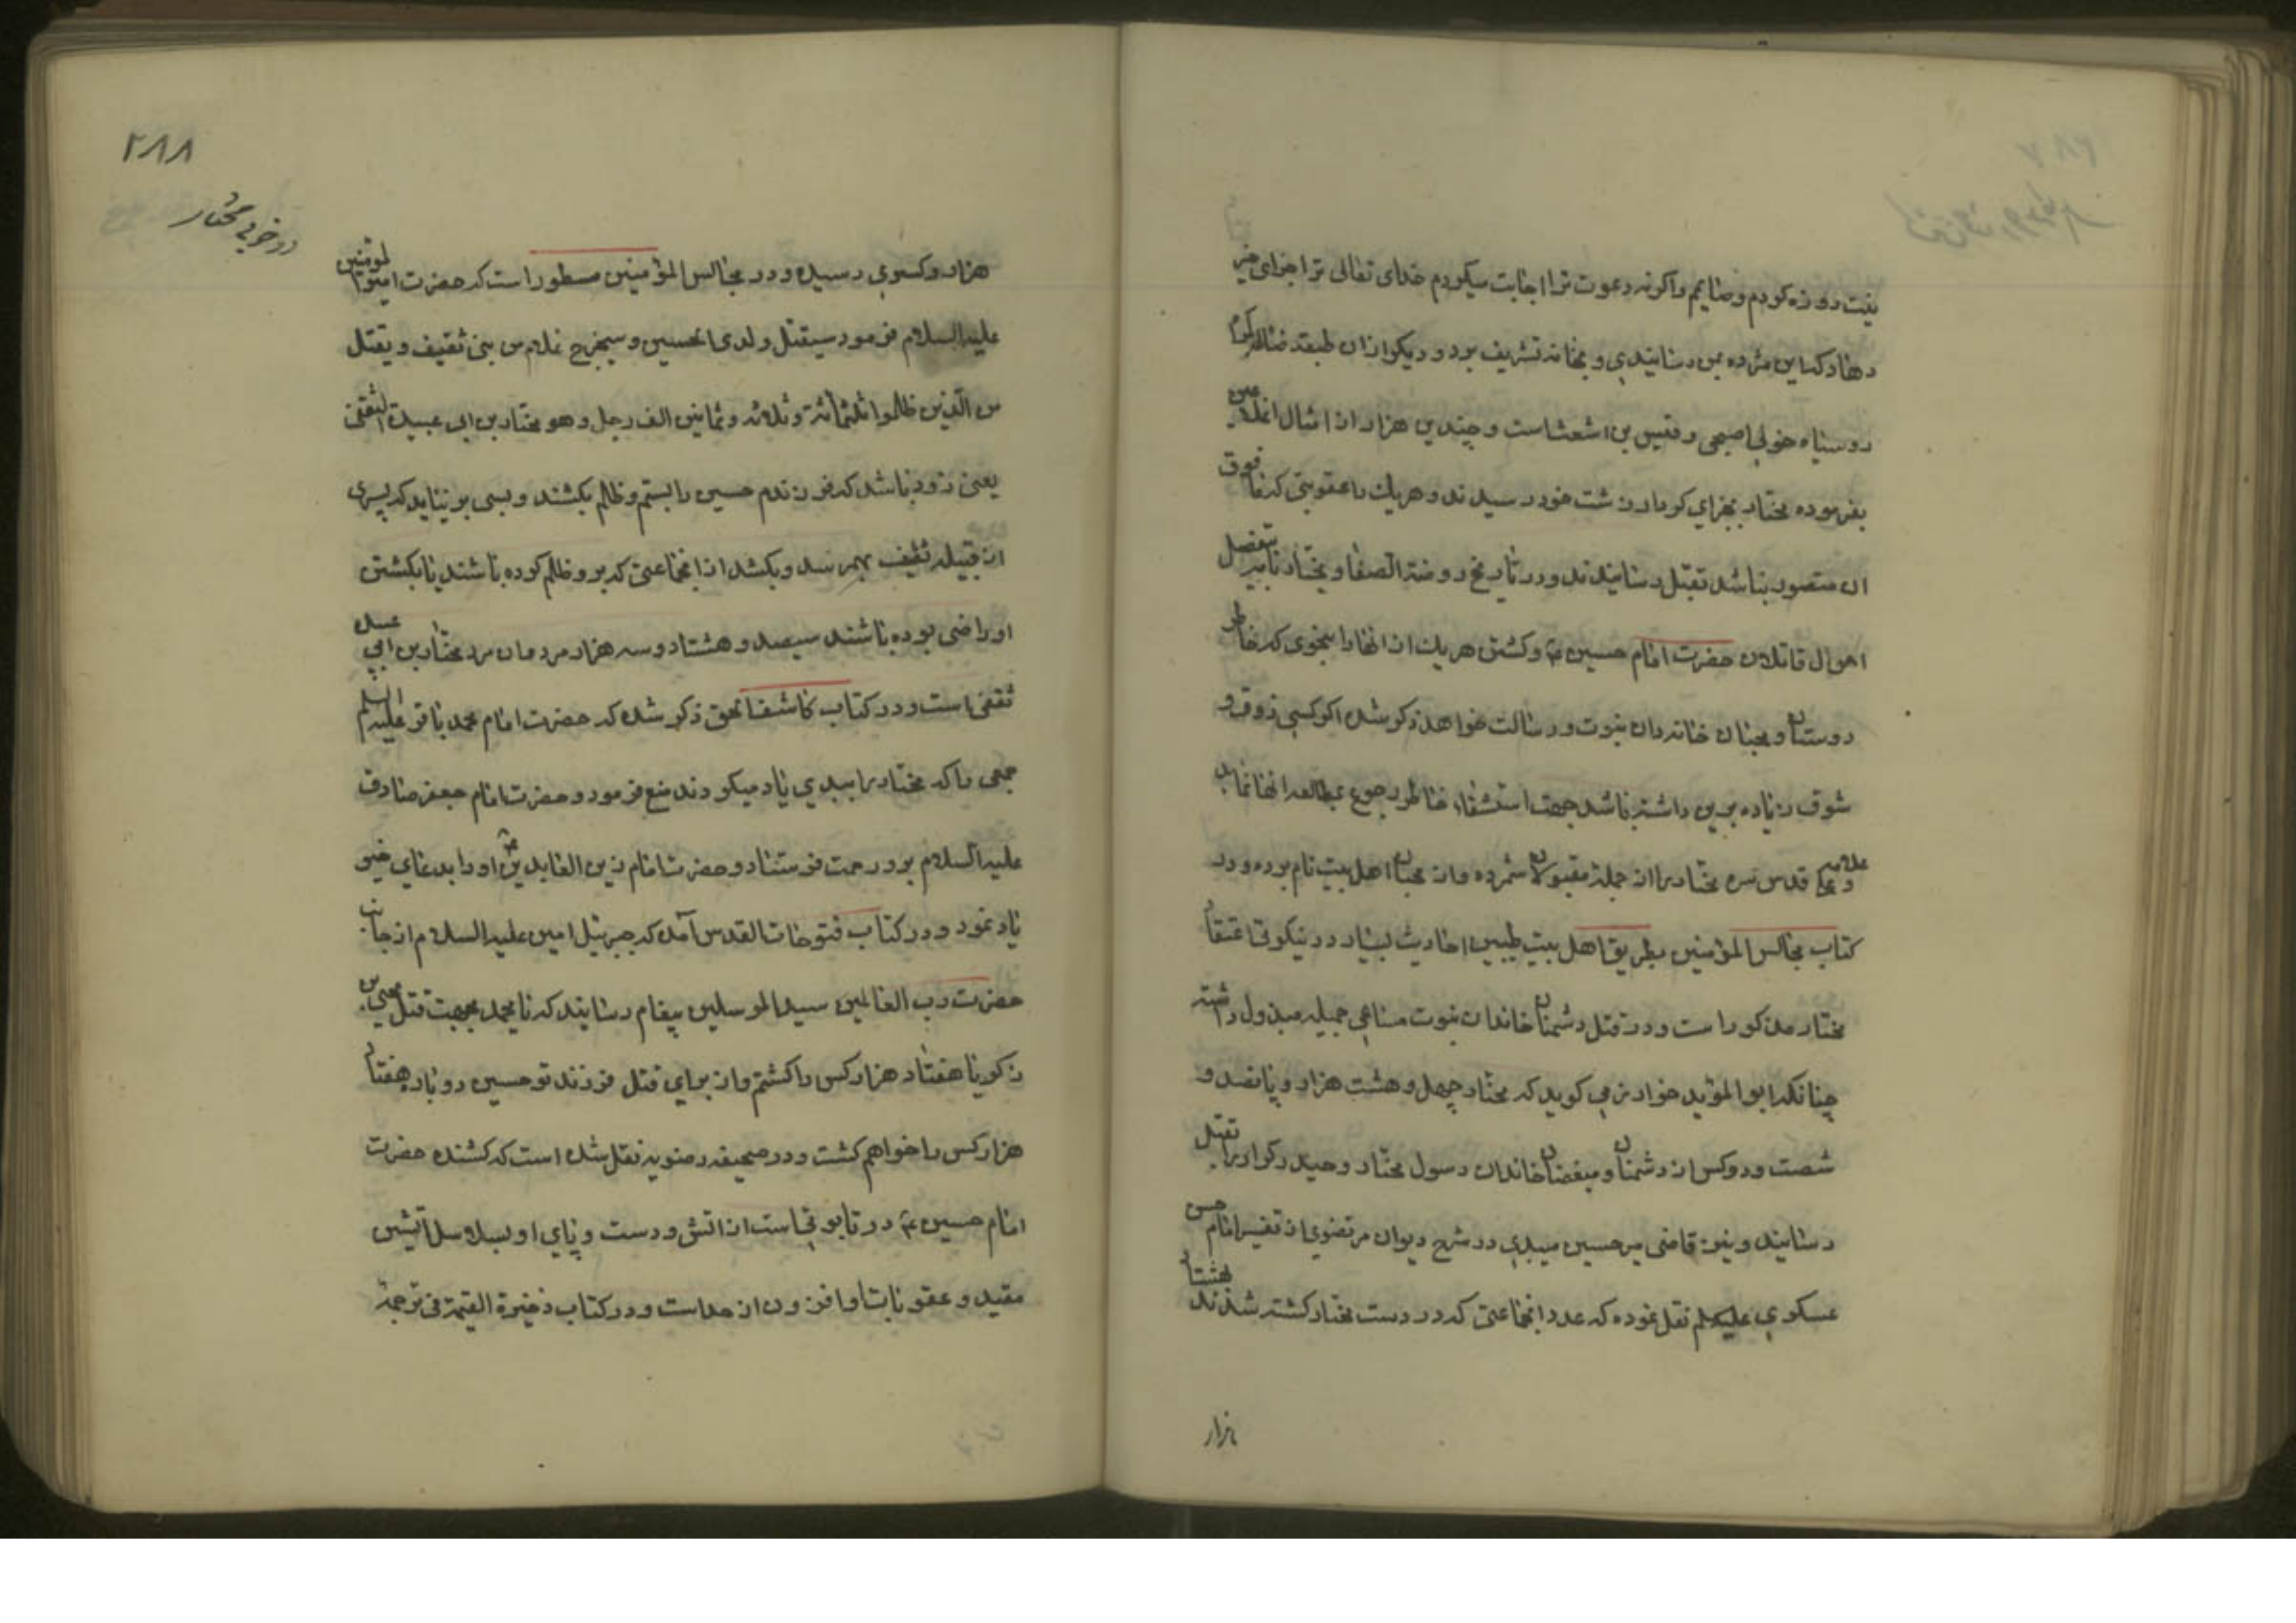 نیت روزه کردم و صایم واگرنه دعوت ترا اجابت میکردم خدای تعالی ترا جزای خیر
دهاد که این مژده بمن رسانیدی و بخانه تشریف برد و دیگر از ان طبقه ضاله کمراه
روسیاه خولی اصبحی و قیس بن اشعث است و چندین هزار از امثال انملاعین
بفرموده مختار بجزای کردار زشت خود رسیدند و هریك باعقوبتی که مافوق
ان متصور نباشد بقتل رسانیدند و در تاریخ روضة الصفا و مختار نامه بتفصیل
احوال قاتلان حضرت امام حسین ع و کشتن هریك از انها را بنحوی که خاطر
دوستان و محبان خاندان نبوت و رسالت خواهد ذکر شده اگر کسی ذوق و
شوق زیاده برین داشته باشد جهت استشفاء خاطر رجوع بمطالعه انها نماید
و علامه قدس سره مختار را از جمله مقبولان شمرده و از محبان اهل بیت نام برده و در
کتاب مجالس المؤمنین بطریق اهل بیت طیبین احادیث بسیار در نیکوئی اعتقاد
مختار مذکور است و در قتل دشمنان خاندان نبوت مساعی جمیله مبذول داشته
چنانکه ابو المؤید خوارزمی کوید که مختار چهل و هشت هزار و پانصد و
شصت و دو کس از دشمنان و مبغضان خاندان رسول مختار و حیدر کرار را بقتل
رسانید و نیز قاضی میر حسین میبدی در شرح دیوان مرتضوی از تفسیر امام حسن
عسکری علیه السلم نقل نموده که عدد انجماعتی که در دست مختار کشته شدند بهشتاد
هزار
۲۸۸
در خوبی مختار
هزار و کسری رسیده و در مجالس المؤمنین مسطور است که حضرت امیر المؤمنین
علیه السلام فرمود سیقتل ولدی الحسین و سیخرج غلام من بنی ثقیف و یقتل
من الذین ظلموا ثلثمائة و ثلاثه و ثمانین الف رجل و هو مختار بن ابی عبیدة الثقفی
یعنی زود باشد که فرزندم حسین را بستم و ظلم بکشند و بسی بر نیاید که پسری
از قبیله ثقیف بهم رسد و بکشد از انجماعتی که بر و ظلم کرده باشند یا بکشتن
او راضی بوده باشند سیصد و هشتاد و سه هزار مردمان مرد مختار بن ابی عبیده
ثقفی است و در کتاب کاشف الحق ذکر شده که حضرت امام محمد باقر علیه السلم
جمعی را که مختار را ببدی یاد میکردند منع فرمود و حضرت امام جعفر صادق
علیه السلام برو رحمت فرستاد و حضرت امام زین العابدین ع او را بدعای خیر
یاد نمود و در کتاب فتوحات القدس آمده که جبرئیل امین علیه السلام از جانب
حضرت رب العالمین سید المرسلین پیغام رسانید که یا محمد بجهت قتل یحیی بن
زکریا هفتاد هزار کس را کشتم و از برای قتل فرزند تو حسین دو بار هفتاد
هزار کس را خواهم کشت و در صحیفه رضویه نقل شده است که کشنده حضرت
امام حسین ع در تابوتی است از اتش و دست و پای او بسلاسل آتشین
مقید و عقوبات او افزون از حد است و در کتاب ذخیرة القیمة فی ترجمة